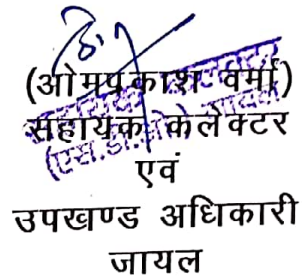 (ओमप्रकाश वर्मा)
सहायक कलेक्टर
एवं
उपखण्ड अधिकारी
जायल